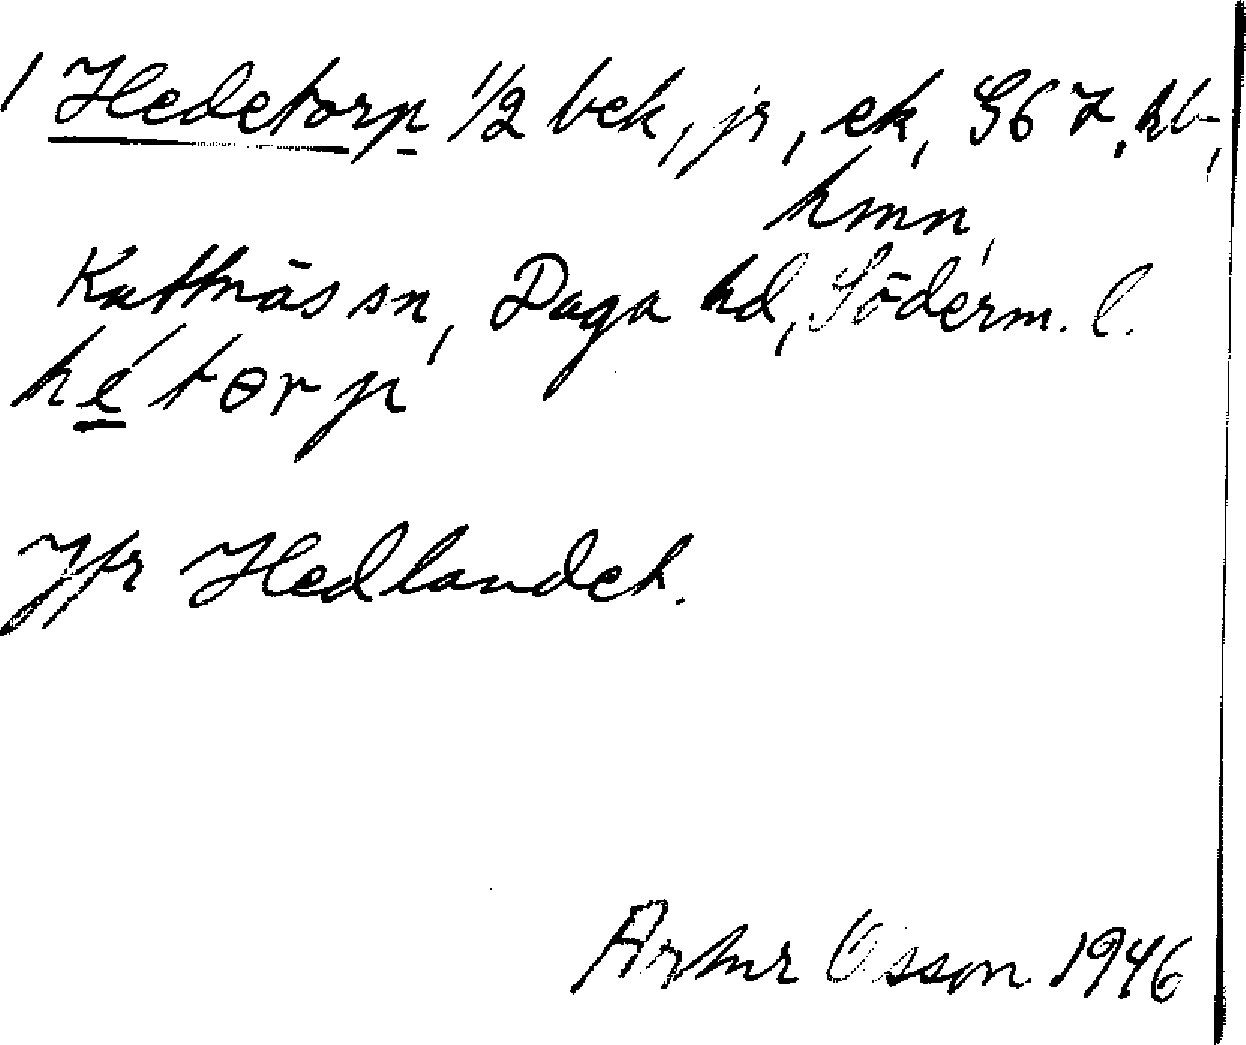 1 Hedetorp 1/2 bek, jr, ek, G6 7, hb,
hmn,
Kattnäs sn, Daga hd, Söderm. l.
hétorp
Jfr Hedlandet.
Artur Osson 1946